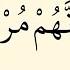 نَّهُمْ مُر